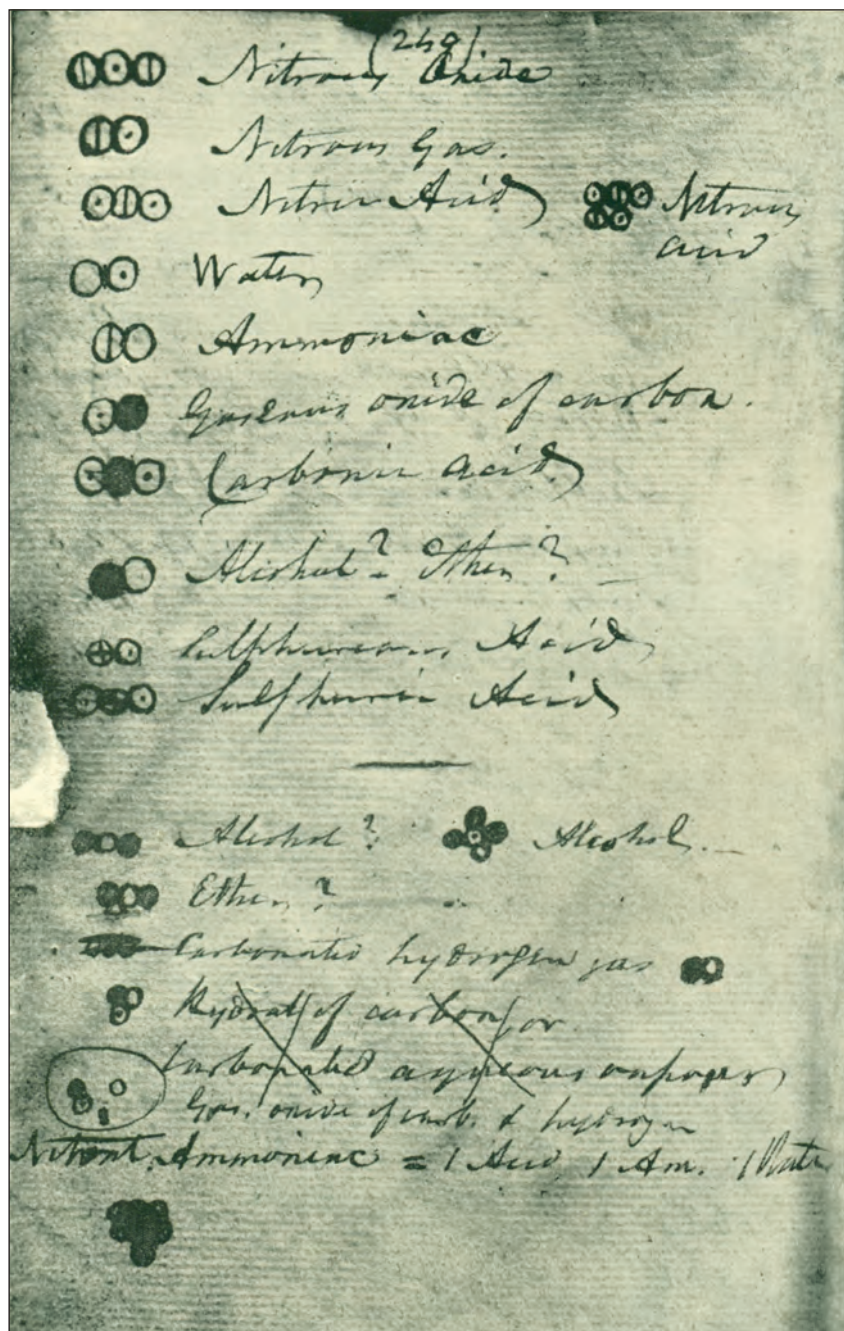 (249)
Nitrous Oxide
Nitrous Gas.
Nitric Acid
Nitrous
acid
Water
Ammoniac
Gaseous oxide of carbon.
Carbonic acid
Alcohol? Ether?
Sulphureous Acid
Sulphuric Acid
Alcohol?
Alcohol
Ether?
Carbonated hydrogen gas
Hydrat of carbon or
Carbonated aqueous vapour
Gas. oxide of carb. & hydrogen
Ammoniac = 1 Acid, 1 Am. 1 Water